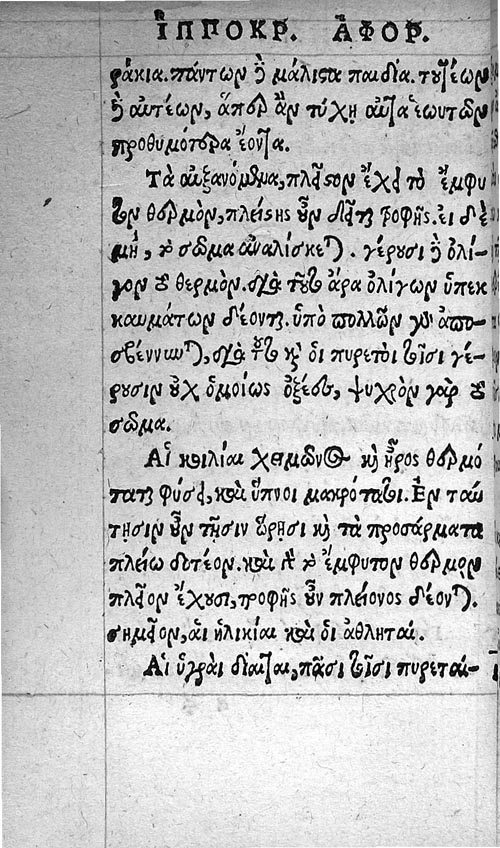 ἹΠΠΟΚΡ. ἈΦΟΡ.
ράκια. πάντων δὲ μάλιστα παιδία. τουτέων
δὲ αυτέων, ἅπερ ἂν τύχῃ αυτὰ ἑωυτῶν
προθυμότερα ἐόντα.
Τὰ αυξανόμενα, πλεῖστον ἔχει τὸ ἔμφυ
τον θερμὸν, πλείστης οὖν δεῖται τροφῆς. εἰ δὲ
μή, τὸ σῶμα αναλίσκεται. γέρουσι δὲ ὀλί-
γον τὸ θερμὸν. διὰ τοῦτο ἄρα ολίγων ὑπεκ
καυμάτων δέονται. ὑπὸ πολλῶν γὰρ ἀπο-
σβέννυται, διὰ τοῦτο καὶ ὁι πυρετὸι τοῖσι γέ-
ρουσιν οὐχ ὁμοίως ὀξέες, ψυχρὸν γὰρ τὸ
σῶμα.
Αἱ κοιλίαι χειμῶνος καὶ ἦρος θερμό
ταται φύσει, καὶ ὕπνοι μακρότατοι. Ἐν ταύ
τῃσιν οὖν τῇσιν ὥρῃσι καὶ τὰ προσάρματα
πλείω δοτέον. καὶ γὰρ τὸ ἔμφυτον θερμὸν
πλεῖον ἔχουσι, τροφῆς οὖν πλείονος δέονται.
σημεῖον, ἁι ἡλικίαι καὶ ὁι ἀθληταί.
Αἱ ὑγραὶ δίαιται, πᾶσι τοῖσι πυρεταί-